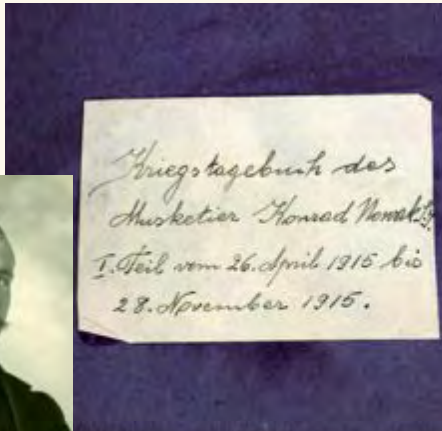 Kriegstagebuch des
Musketier Konrad Nowak S.J.
I. Teil vom 26. April 1915 bis
28. November 1915.